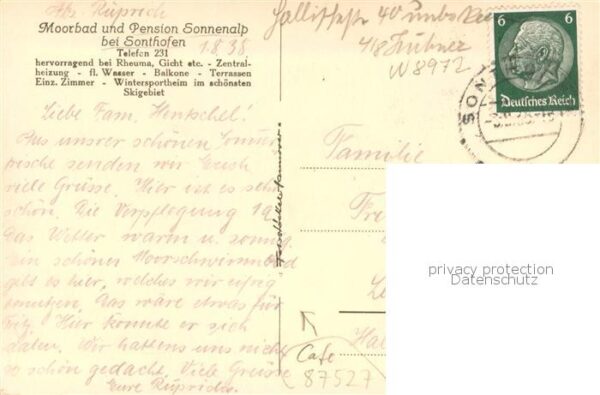 Abs. Ruprich
Moorbad und Pension Sonnenalp
bei Sonthofen
1.8.38
Telefon 231
hervorragend bei Rheuma, Gicht etc. - Zentral-
heizung - fl. Wasser - Balkone - Terrassen
Einz. Zimmer - Wintersportheim im schönsten
Skigebiet
Liebe Fam. Hentschel!
Aus unsrer schönen
senden wir Euch
viele Grüsse. Hier ist es sehr
schön. Die Verpflegung 1a
das Wetter warm u. sonnig.
Ein schönes Moorschwimmbad
gibt es hier, welches wir eifrig
benutzen. Das wäre etwas für
Fritz. Hier könnte er sich
aalen. Wir hattens uns nicht
so schön gedacht. Viele Grüsse
Eure Ruprichs.
40
W 8972
6 6
Deutsches Reich
SON
Familie
Fr
Hal
Cafe
87527
privacy protection
Datenschutz